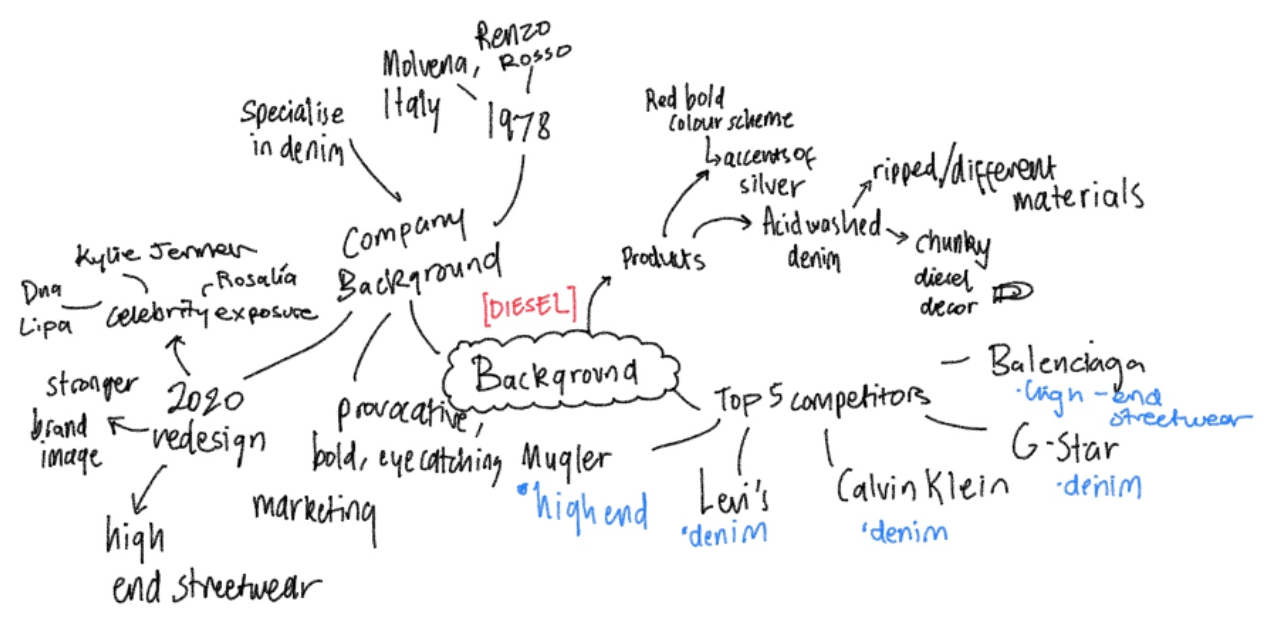 Renzo
Rosso
Molvena,
Italy
1978
Specialise
in denim
Company
Background
Kylie Jenner
Rosalía
Dua
Lipa
celebrity exposure
stronger
brand
image
2020
redesign
high
end streetwear
provocative,
bold, eyecatching
marketing
[DIESEL]
Background
Products
Red bold
colour scheme
↳accents of
silver
Acid washed
denim
ripped/different
materials
chunky
diesel
decor
D
Top 5 competitors
Mugler
•high end
Levi's
•denim
Calvin Klein
•denim
G-Star
•denim
Balenciaga
•high-end
streetwear